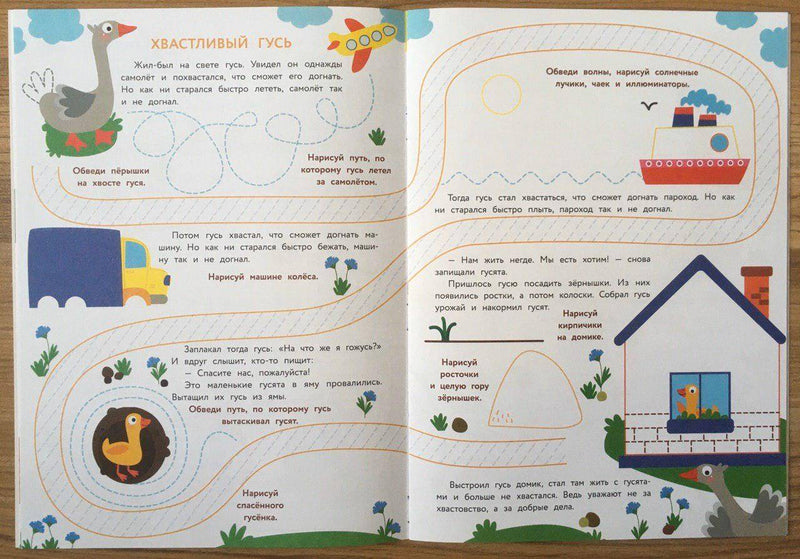 ХВАСТЛИВЫЙ ГУСЬ
Жил-был на свете гусь. Увидел он однажды
самолёт и похвастался, что сможет его догнать.
Но как ни старался быстро лететь, самолёт так
и не догнал.
Обведи пёрышки
на хвосте гуся.
Нарисуй путь, по
которому гусь летел
за самолётом.
Потом гусь хвастал, что сможет догнать ма-
шину. Но как ни старался быстро бежать, маши-
ну так и не догнал.
Нарисуй машине колёса.
Заплакал тогда гусь: «На что же я гожусь?»
И вдруг слышит, кто-то пищит:
— Спасите нас, пожалуйста!
Это маленькие гусята в яму провалились.
Вытащил их гусь из ямы.
Обведи путь, по которому гусь
вытаскивал гусят.
Нарисуй
спасённого
гусёнка.
Обведи волны, нарисуй солнечные
лучики, чаек и иллюминаторы.
Тогда гусь стал хвастаться, что сможет догнать пароход. Но как
ни старался быстро плыть, пароход так и не догнал.
— Нам жить негде. Мы есть хотим! — снова
запищали гусята.
Пришлось гусю посадить зёрнышки. Из них
появились ростки, а потом колоски. Собрал гусь
урожай и накормил гусят.
Нарисуй
кирпичики
на домике.
Нарисуй
росточки
и целую гору
зёрнышек.
Выстроил гусь домик, стал там жить с гусята-
ми и больше не хвастался. Ведь уважают не за
хвастовство, а за добрые дела.